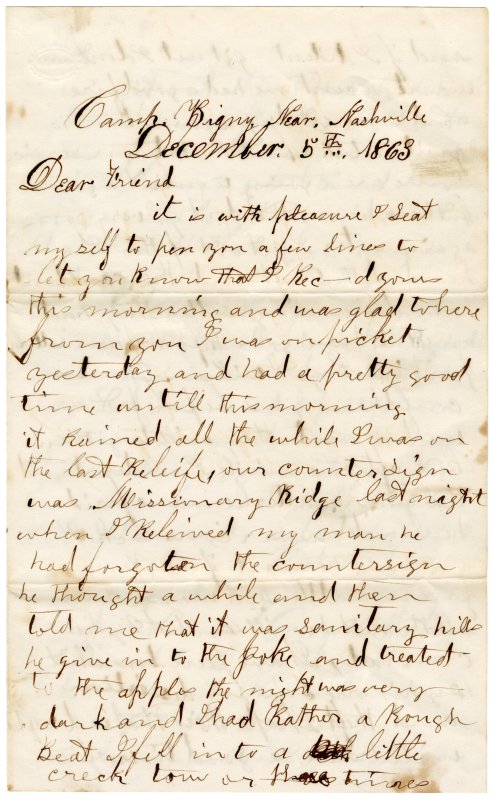 Camp Bigny Near, Nashville
December. 5th. 1863
Dear Friend
it is with pleasure I seat
my self to pen you a few lines to
let you know that I Rec—d yours
this morning and was glad to here
from you I was on picket
yesterday and had a pretty good
time untill this morning
it rained all the while I was on
the last Releife, our countersign
was Missionary Ridge last night
when I Releived my man he
had forgoten the countersign
he thought a while and then
told me that it was sanitary hills
he give in to the joke and treated
to the apples the night was very
dark and I had Rather a Rough
beat I fell in to a little
creek tow or three times